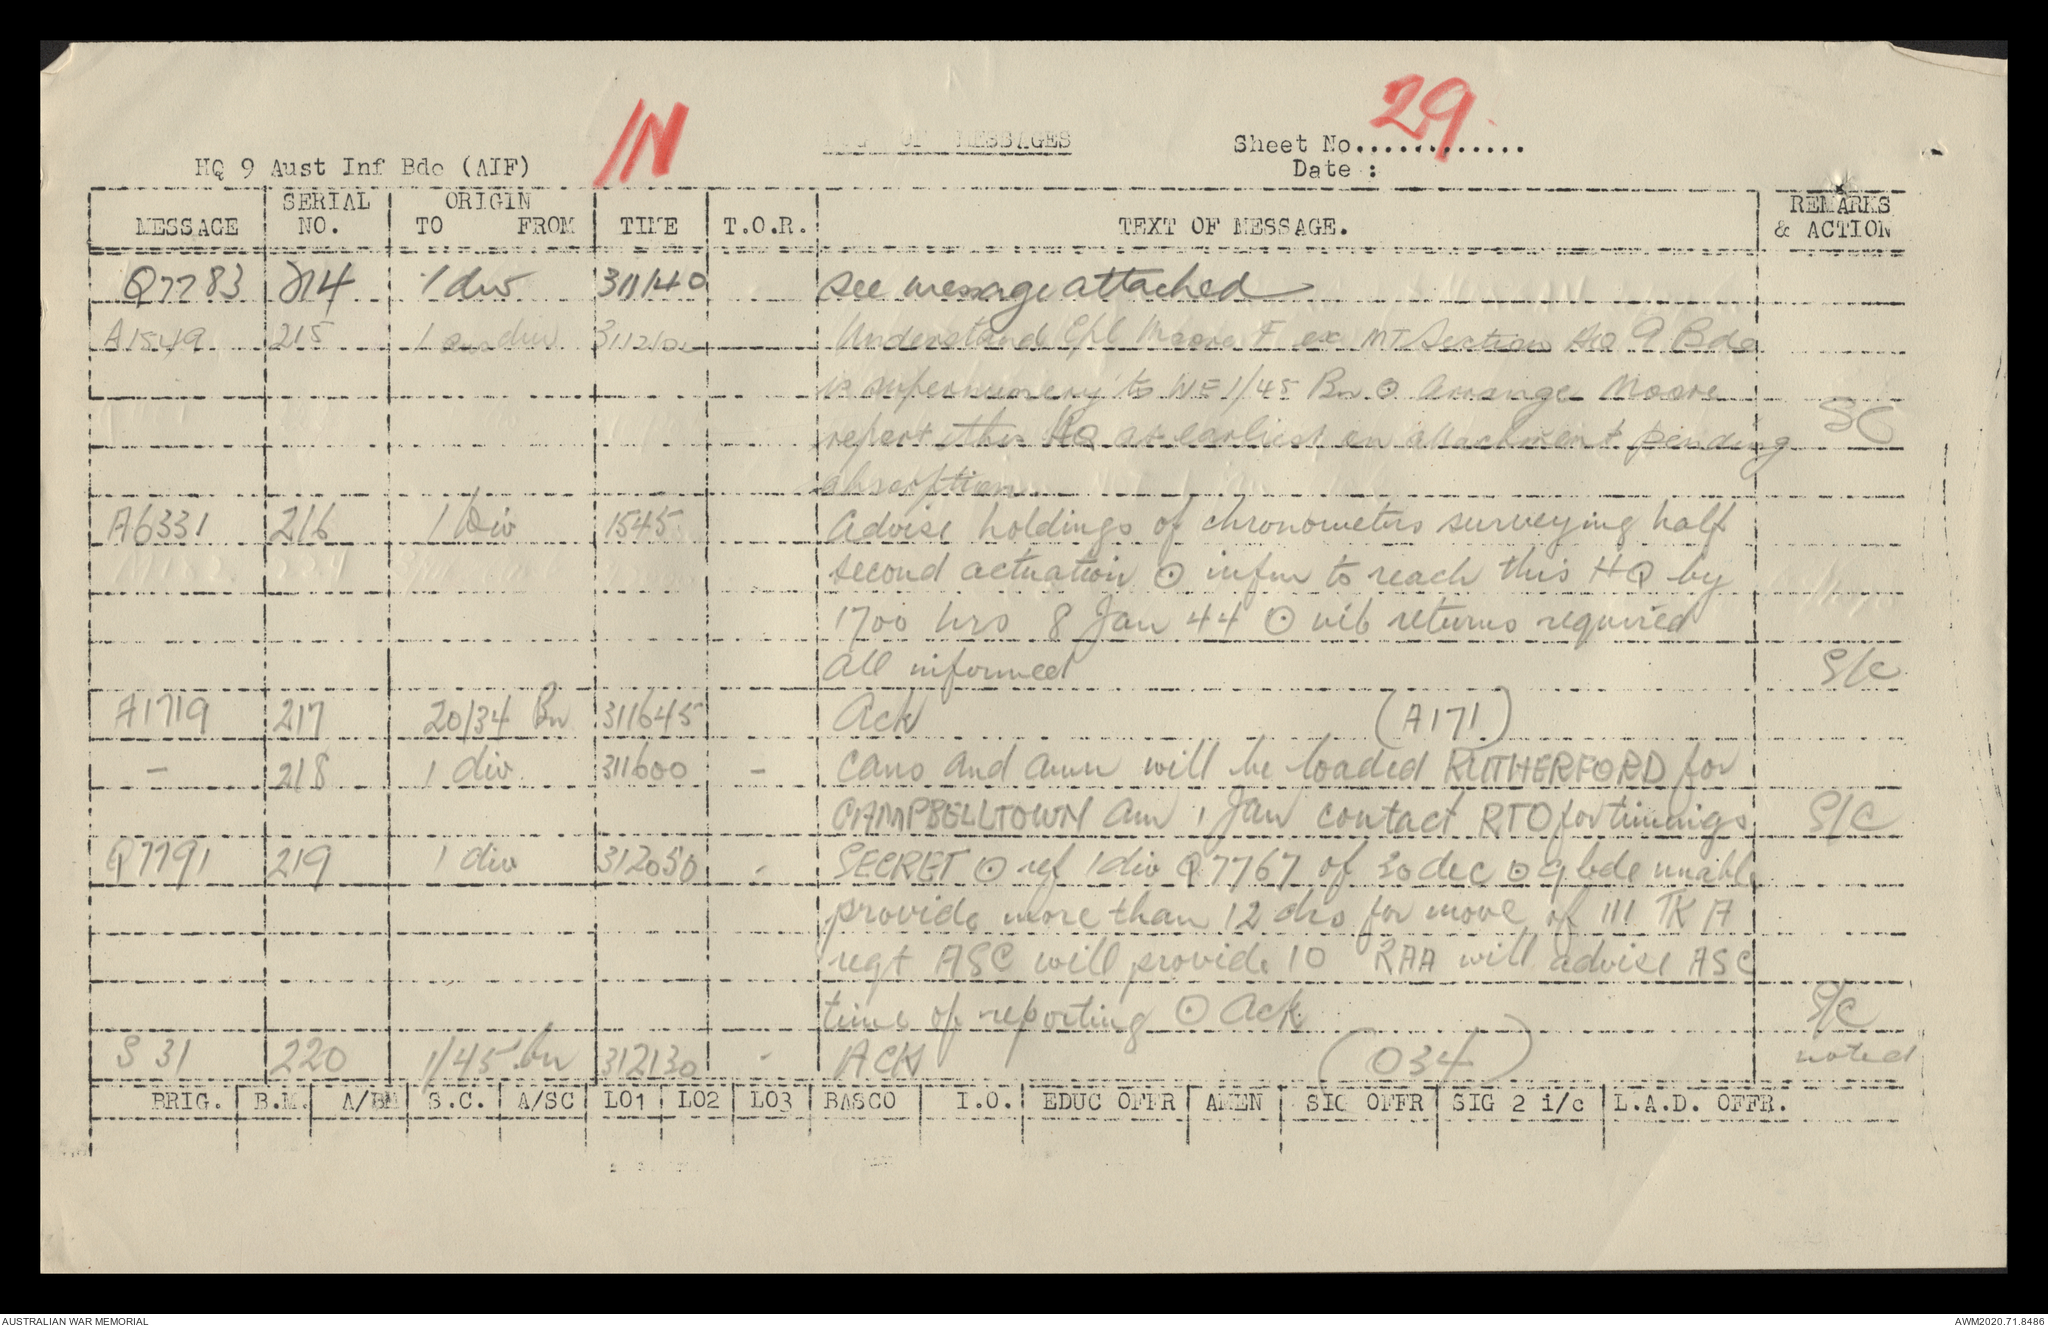 IN
LOG OF MESSAGES
Sheet No............. 29
HQ 9 Aust Inf Bde (AIF)
Date :
MESSAGE | SERIAL NO. | ORIGIN TO FROM | TIME | T.O.R. | TEXT OF MESSAGE. | REMARKS & ACTION
Q7783 214 1 div 311140 see message attached
A1549 215 1 aus div Understand Cpl Moore F ex MT Section HQ 9 Bde
is supernumery to WE 1/45 Bn ⊙ Arrange Moore
report this HQ at earliest on attachment pending SC
absorption
A6331 216 1 Div 1545 Advise holdings of chronometers surveying half
second actuation ⊙ infm to reach this HQ by
1700 hrs 8 Jan 44 ⊙ nib returns required
all informed S/C
A1719 217 20/34 Bn 311645 Ack (A171)
- 218 1 div 311600 - Cans and amn will be loaded RUTHERFORD for
CAMPBELLTOWN am 1 Jan contact RTO for timings S/C
Q7791 219 1 div 312050 - SECRET ⊙ ref 1 div Q7767 of 30 dec ⊙ 9 bde unable
provide more than 12 drs for move of 111 TK A
regt ASC will provide 10 RAA will advise ASC
time of reporting ⊙ Ack S/C
S 31 220 1/45 bn 312130 - ACK (034) noted
BRIG. | B.M. | A/BM | S.C. | A/SC | LO1 | LO2 | LO3 | BASCO | I.O. | EDUC OFFR | AMEN | SIG OFFR | SIG 2 i/c | L.A.D. OFFR.
AUSTRALIAN WAR MEMORIAL
AWM2020.71.8486